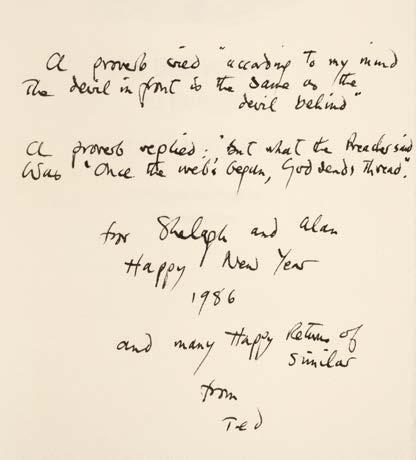 A proverb cried "according to my mind
The devil in front is the same as the
devil behind"
A proverb replied: "But what the Preacher said
Was 'Once the web's begun, God sends thread'."
for Shelagh and Alan
Happy New Year
1986
and many Happy Returns of
Similar
from
Ted